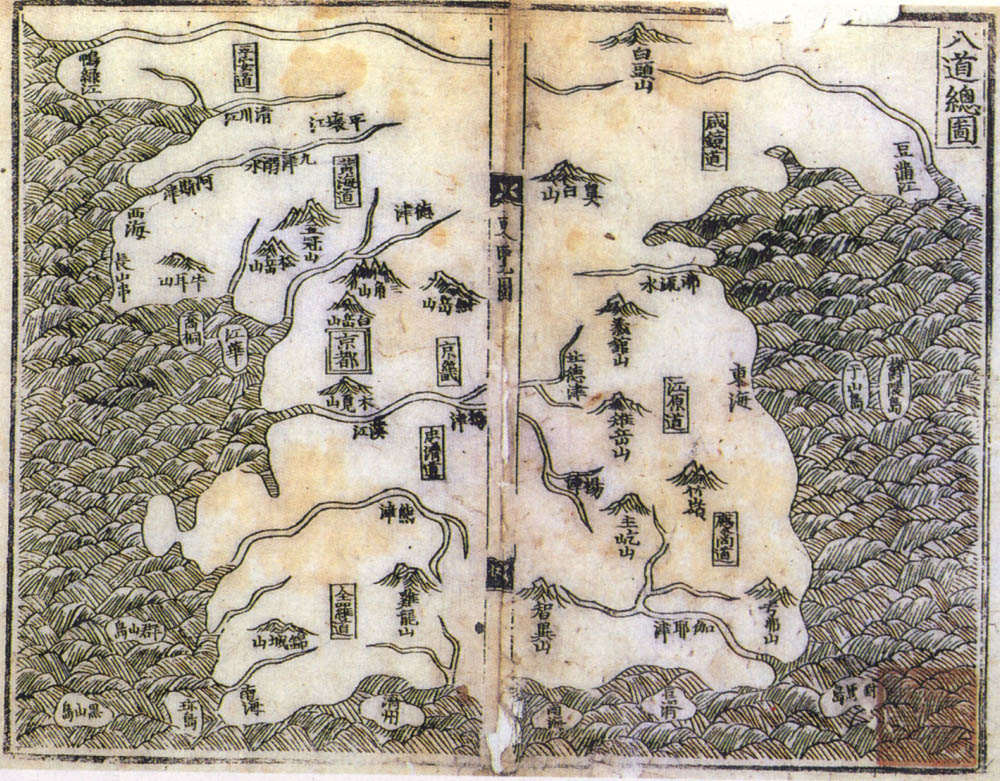 八道總圖
白頭山
咸鏡道
豆滿江
鼻白山
沸流水
義館山
江原道
東海
鬱陵島
于山島
德津
雉岳山
楊津
竹嶺
主屹山
慶尚道
智異山
伽耶津
于弗山
對馬島
巨濟
南海
東覽圖
鴨綠江
平安道
清川江
平壤江
九津溺水
阿斯津
黃海道
德津
西海
長山串
五冠山
松岳山
牛耳山
三角山
紺岳山
白岳山
京都
京畿
喬桐
江華
木覓山
漢江
楊津
忠清道
熊津
雞龍山
全羅道
錦城山
群山島
黑山島
珍島
南海
濟州